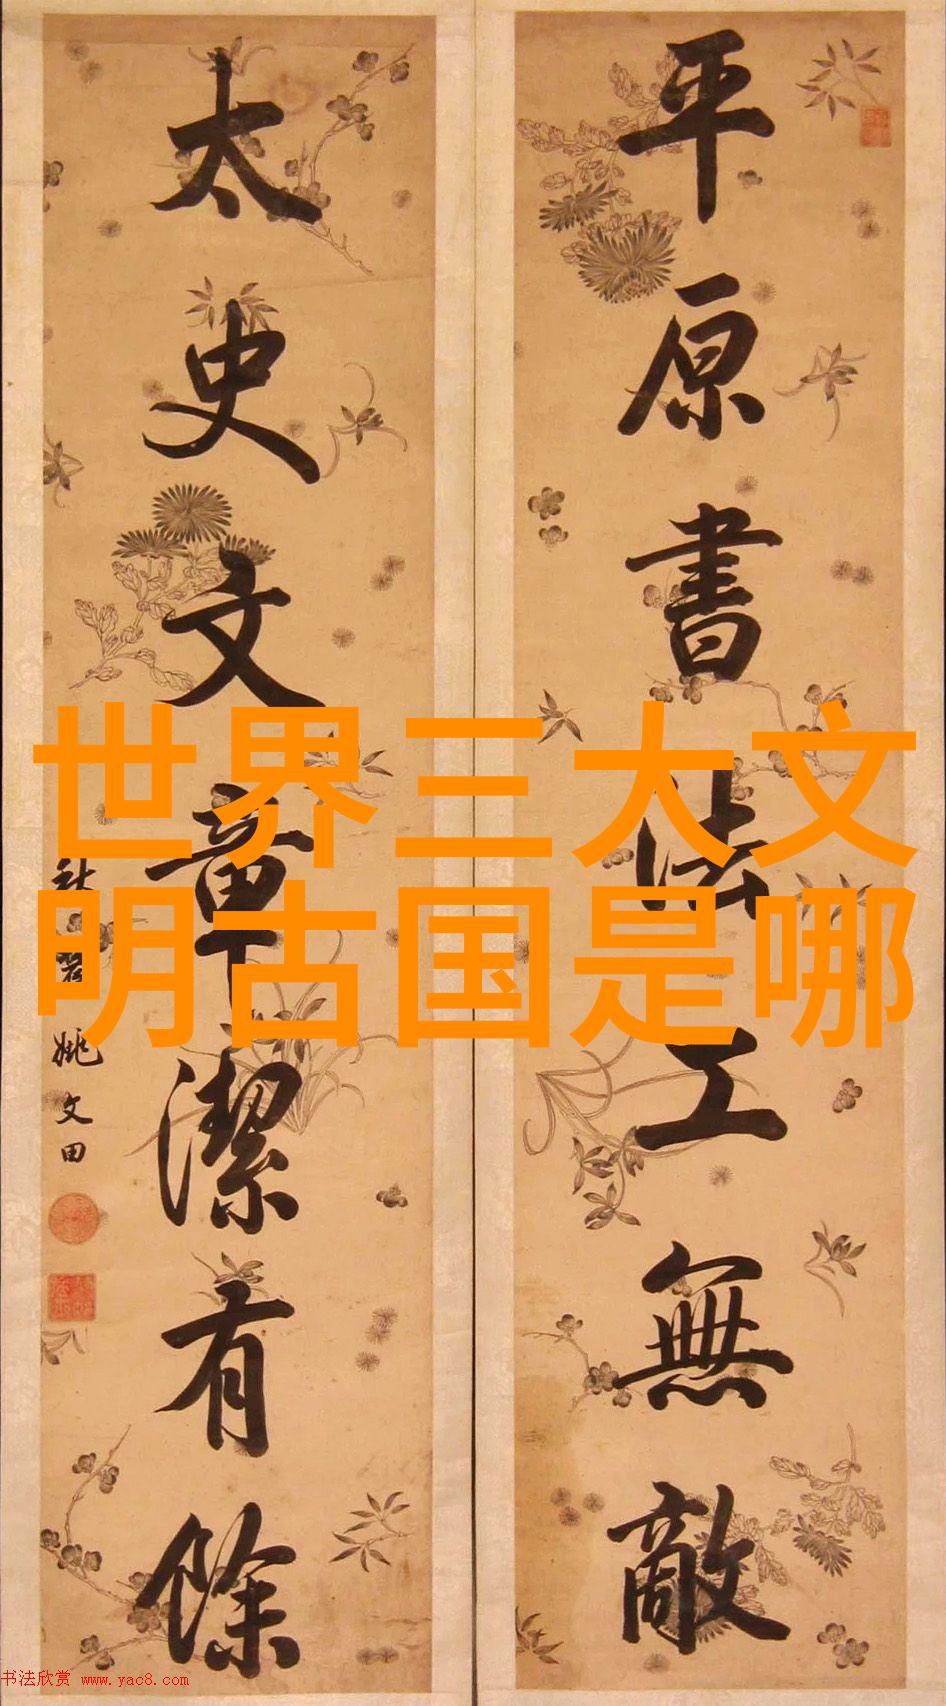 平原書法工無敵
太史文章潔有餘
姚文田
世界三大文
明古国是哪
书法欣赏 www.yac8.com